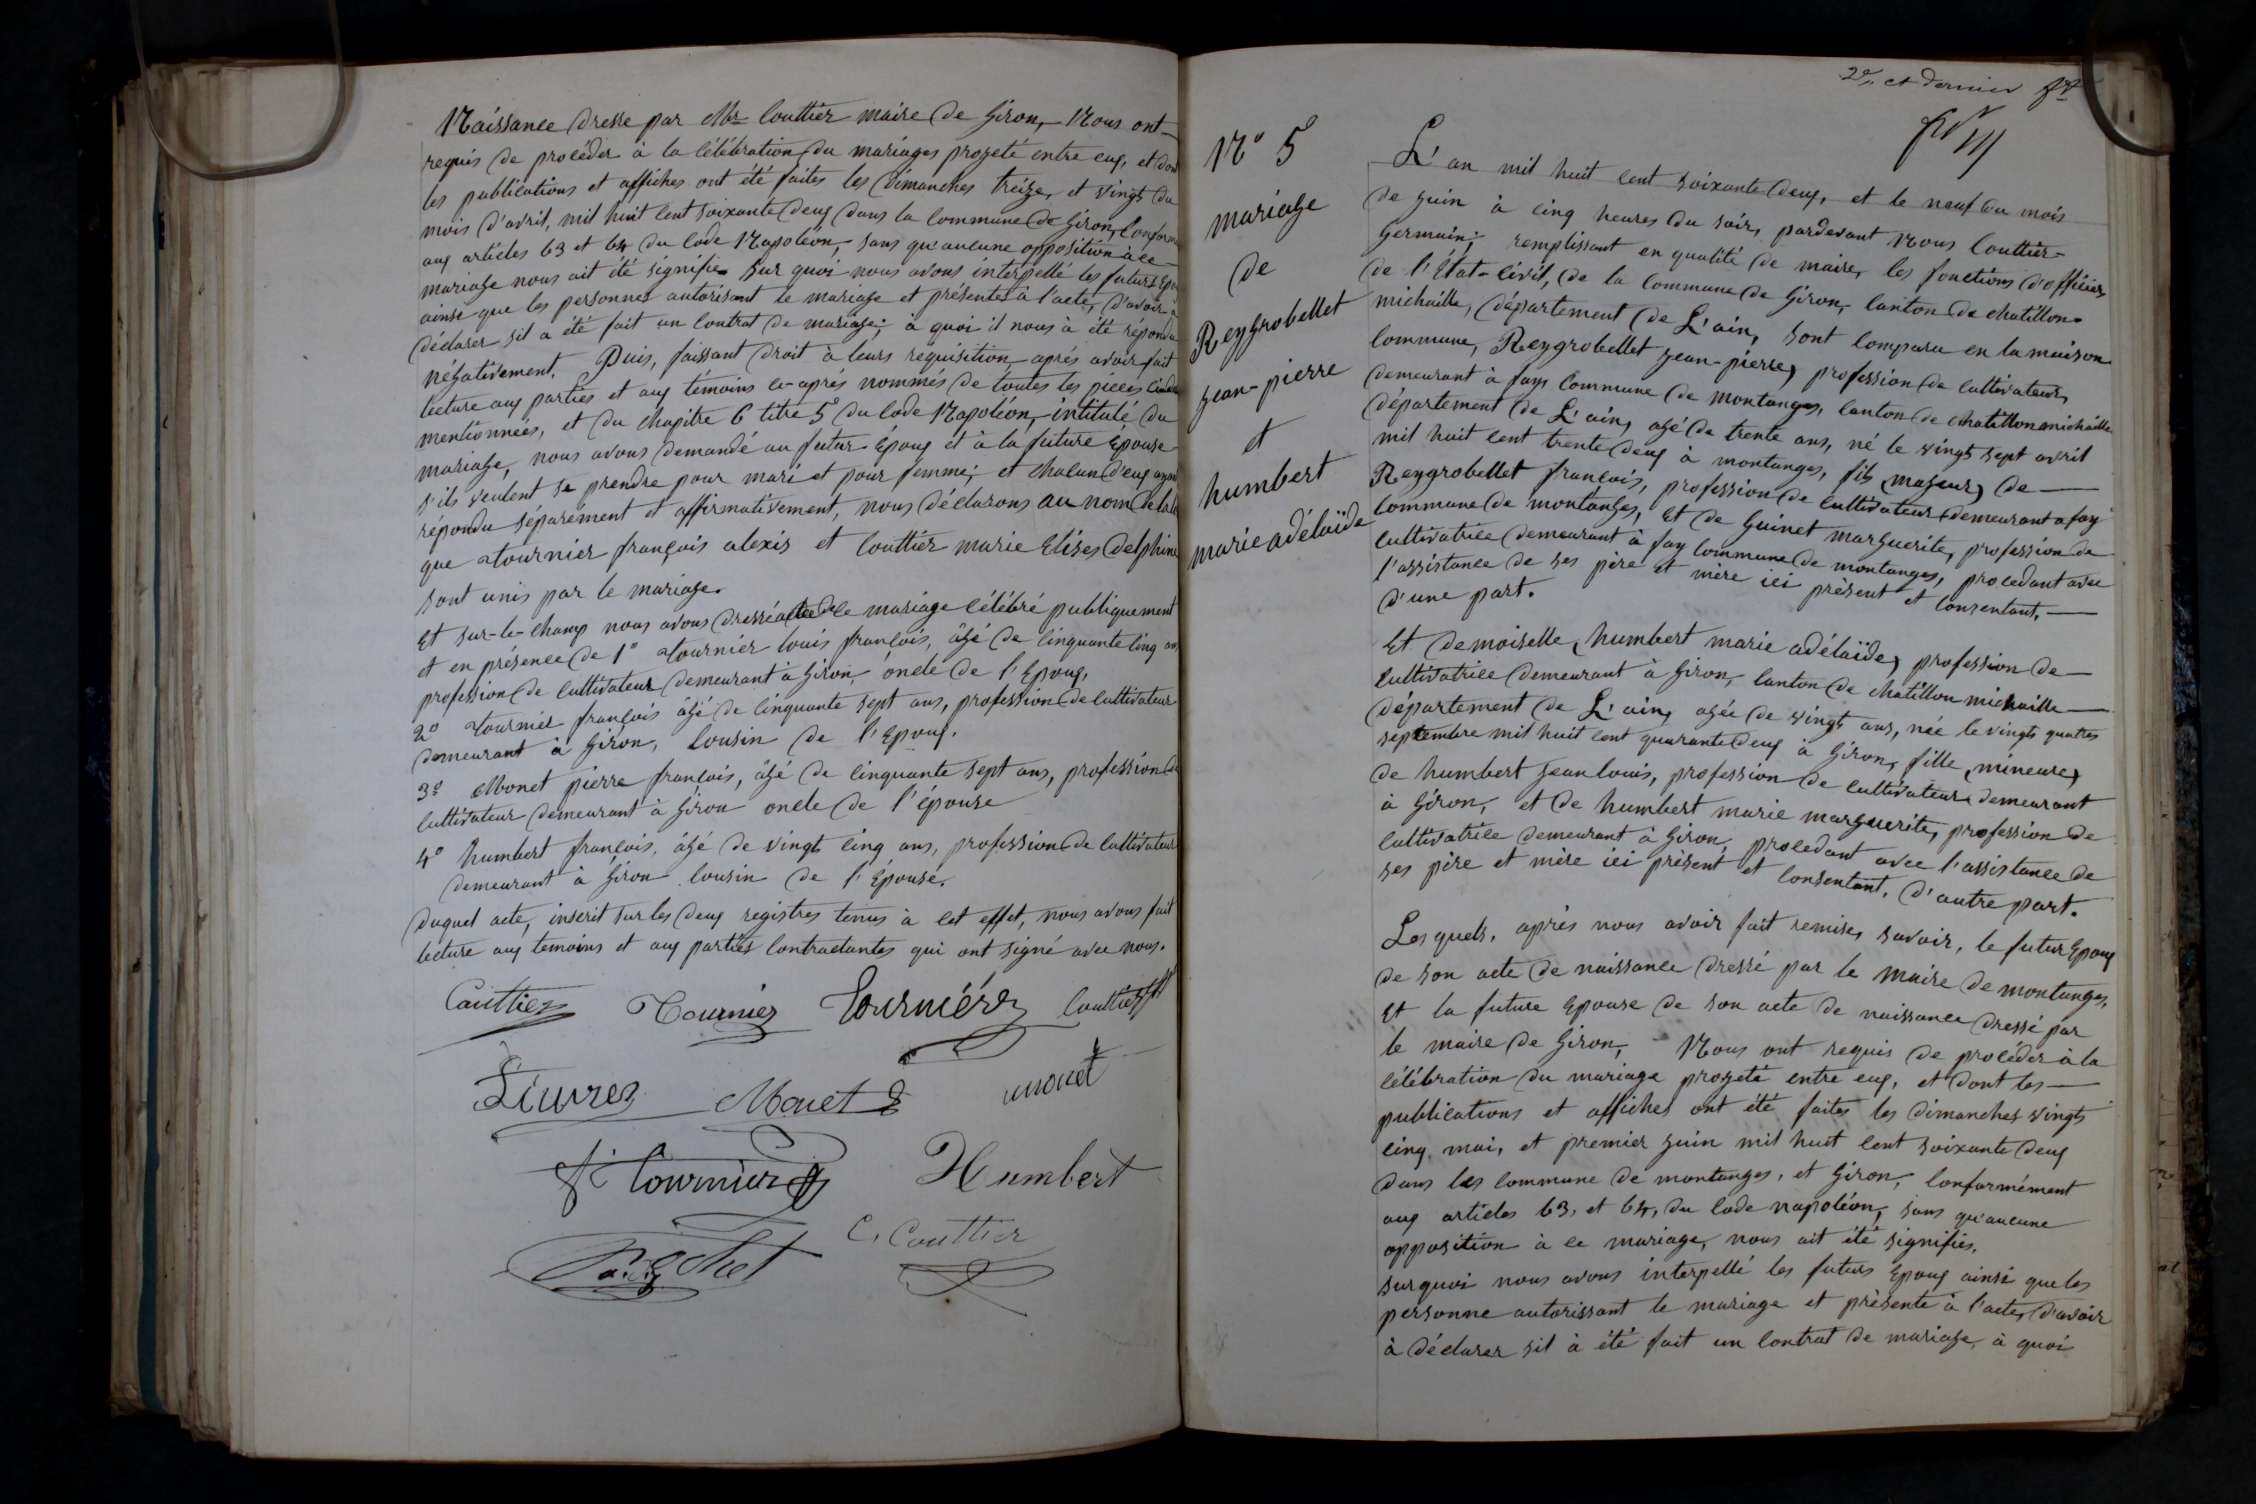 Naissance dresse par Mr Couttier maire de Giron, Nous ont
requis de procéder à la célébration du mariages projeté entre eux, et dont
les publications et affiches ont été faites les dimanches treize, et vingt du
mois d'avril, mil huit cent soixante deux dans la commune de Giron, Conform
aux articles 63 et 64 du Code Napoléon, sans qu'aucune opposition à ce
mariage nous ait été signifie. Sur quoi nous avons interpellé les futurs Ep
ainsi que les personnes autorisant le mariage et présentes à l'acte, d'avoir à
déclarer sil a été fait un Contrat de mariage; à quoi il nous à été répondu
négativement. Puis, faissant droit à leurs requisition, aprés avoir fait
lecture aux parties et aux témoins ci-aprés nommés de toutes les pièces
mentionnées, et du chapitre 6 titre 5 du Code Napoléon, intitulé du
mariage, nous avons demandé au futur Epoux et à la future Epouse
s'ils veulent se prendre pour mari et pour femme; et chacun d'eux ayant
répondu séparément et affirmativement, nous déclarons au nom de la loi
que Tournier françois alexis et Couttier marie Elises delphine
sont unis par le mariage.
Et sur-le-champ nous avons dressé acte de ce mariage célébré publiquement
et en présence de 1° Tournier louis françois, âgé de cinquante cinq ans
profession de Cultivateur demeurant à Giron, oncle de l'Epoux,
2° Tournier françois âgé de cinquante sept ans, profession de Cultivateur
demeurant à Giron, Cousin de l'Epoux.
3° Monet pierre françois, âgé de cinquante sept ans, profession de
Cultivateur demeurant à Giron oncle de l'épouse
4° humbert françois, âgé de vingt cinq ans, profession de Cultivateur
demeurant à Giron Cousin de l'Epouse.
duquel acte, inscrit sur les deux registres tenus à cet effet, nous avons fait
lecture aux temoins et aux parties Contractantes qui ont signé avec nous.
Couttier Tournier Tournier Couttier
Monet monet
Tournier Humbert
C. Couttier
2e et dernier
N° 5
mariage
de
Reygrobellet
jean-pierre
et
humbert
marie adélaïde
L'an mil huit cent soixante deux, et le neuf du mois
de juin à cinq heures du soir, pardevant Nous Couttier
Germain; remplissant en qualité de maire, les fonctions d'officier
de l'État-Civil, de la Commune de Giron, Canton de chatillon
michaille, département de L'ain, sont Comparu en la maison
Commune, Reygrobellet jean-pierre, profession de Cultivateur,
demeurant à fays Commune de montanges, Canton de chatillonmichaille
département de L'ain, agé de trente ans, né le vingt sept avril
mil huit cent trente deux à montanges, fils (majeur) de
Reygrobellet françois, profession de Cultivateur demeurant a fay
Commune de montanges, Et de Guinet marguerite, profession de
Cultivatrice demeurant à fay Commune de montanges, procedant avec
l'assistance de ses père et mère ici présent et Consentant,
d'une part.
Et demoiselle, humbert marie adélaïde, profession de
Cultivatrice demeurant à Giron, Canton de chatillon michaille
département de L'ain, agée de vingt ans, née le vingt quatres
septembre mil huit cent quarante deux à Giron, fille (mineure)
de humbert jean louis, profession de Cultivateur demeurant
à Giron, et de humbert marie marguerite, profession de
Cultivatrice demeurant à Giron, procedant avec l'assistance de
ses père et mère ici présent et Consentant, d'autre part.
Les quels, aprés nous avoir fait remise, savoir, le futur Epoux
de son acte de naissance dressé par le maire de montanges,
Et la future Epouse de son acte de naissance dressé par
le maire de Giron, Nous ont requis de procéder à la
Célébration du mariage projeté entre eux, et dont les
publications et affiches ont été faites les dimanches vingt
cinq mai, et premier juin mil huit cent soixante deux
dans les Commune de montanges, et Giron, Conformément
aux articles 63, et 64, du Code napoléon, sans qu'aucune
opposition à ce mariage, nous ait été signifiés.
surquoi nous avons interpellé les futurs Epoux ainsi que les
personne autorissant le mariage et présente à l'acte, d'avoir
à déclarer sil à été fait un Contrat de mariage, à quoi